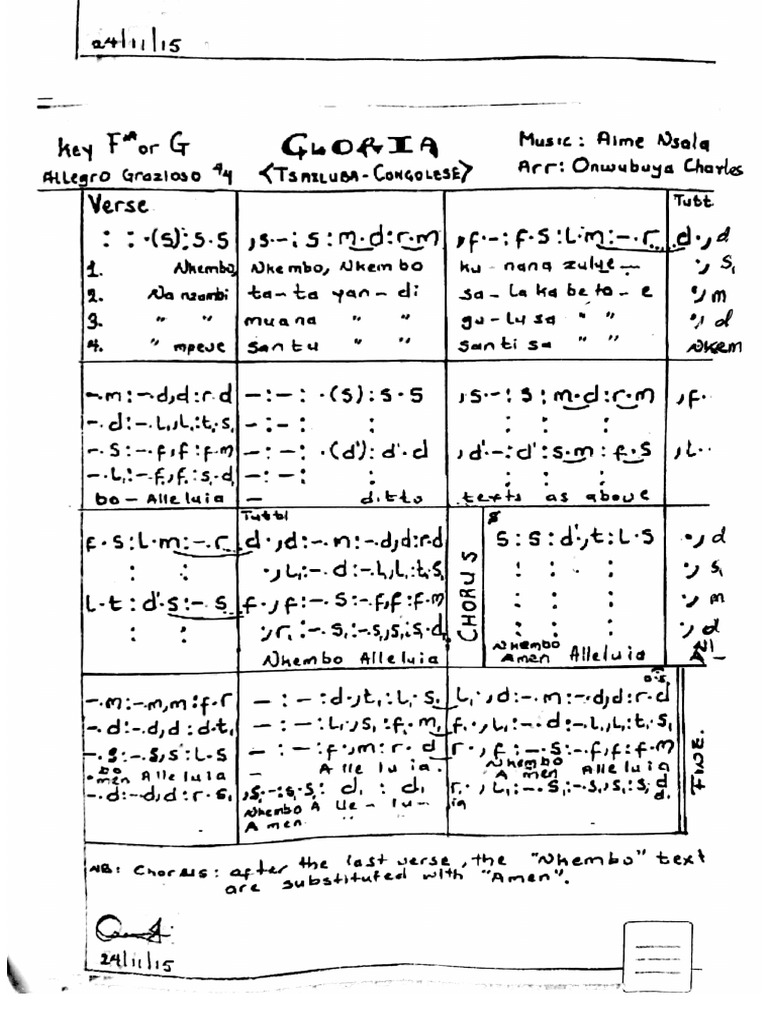 24/11/15
Key F# or G
GLORIA
Music: Aime Nsala
Allegro Grazioso 4/4
<TSHILUBA-CONGOLESE>
Arr: Onwubuya Charles
Verse
Tutti
: : ·(s):s·s | ,s·-: s: m·d:r·m | ,f·-: f·s:l·m:-·r | d·,d
1. Nkembo, Nkembo, Nkembo ku-nana zulue- ·,s₁
2. Na nzambi ta-ta yan-di sa-la ka be to-e ·,m
3. " " muana " " gu-lu sa " " ·,d
4. " mpeve santu " " santi sa " " Nkem
-·m:-·d,d:r·d | -:-: ·(s):s·s | ,s·-: s: m·d:r·m | ,f·
-·d:-·l₁,l₁:t₁·s₁ | -:-: : | : : :
-·s:-·f,f:f·m | -:-: ·(d'):d'·d | ,d'·-:d':s·m:f·s | ,l··
-·l₁:-·f₁,f₁:s₁·d₁ | -:-: : | : : :
bo-Alleluia - ditto texts as above
Tutti
f·s:l·m:-·r | d·,d:-·m:-·d,d:r·d | CHORUS | s:s:d',t:l·s | ·,d
: : | ·,l₁:-·d:-·l₁,l₁:t₁·s₁ | : : : : | ·,s₁
l·t:d'·s:-·s | f·,f:-·s:-·f,f:f·m | : : : : | ·,m
: : | ·,r₁:-·s₁:-·s₁,s₁:s₁·d₁ | : : : : | ·,d
Nkembo Alleluia
Nkembo
Amen Alleluia
D.S.
-·m:-·m,m:f·r | -:-:d·,t₁:l₁·s₁ | l₁·,d:-·m:-·d,d:r·d
-·d:-·d,d:d·t₁ | -:-:l₁·,s₁:f₁·m₁ | f₁·,l₁:-·d:-·l₁,l₁:t₁·s₁
-·s:-·s,s:l·s | -:-:f·,m:r·d | r·,f:-·s:-·f,f:f·m
bo
men Alleluia - Alleluia. Nkembo
Amen Alleluia
-·d:-·d,d:r·s₁ | ,s₁·-:s₁·s₁:d₁:d₁ | r₁·,l₁:-·s₁:-·s₁,s₁:s₁·d
Nkembo Alle-lu- ia
Amen "
FINE.
NB: Chorus: after the last verse, the "Nkembo" text
are substituted with "Amen".
24/11/15